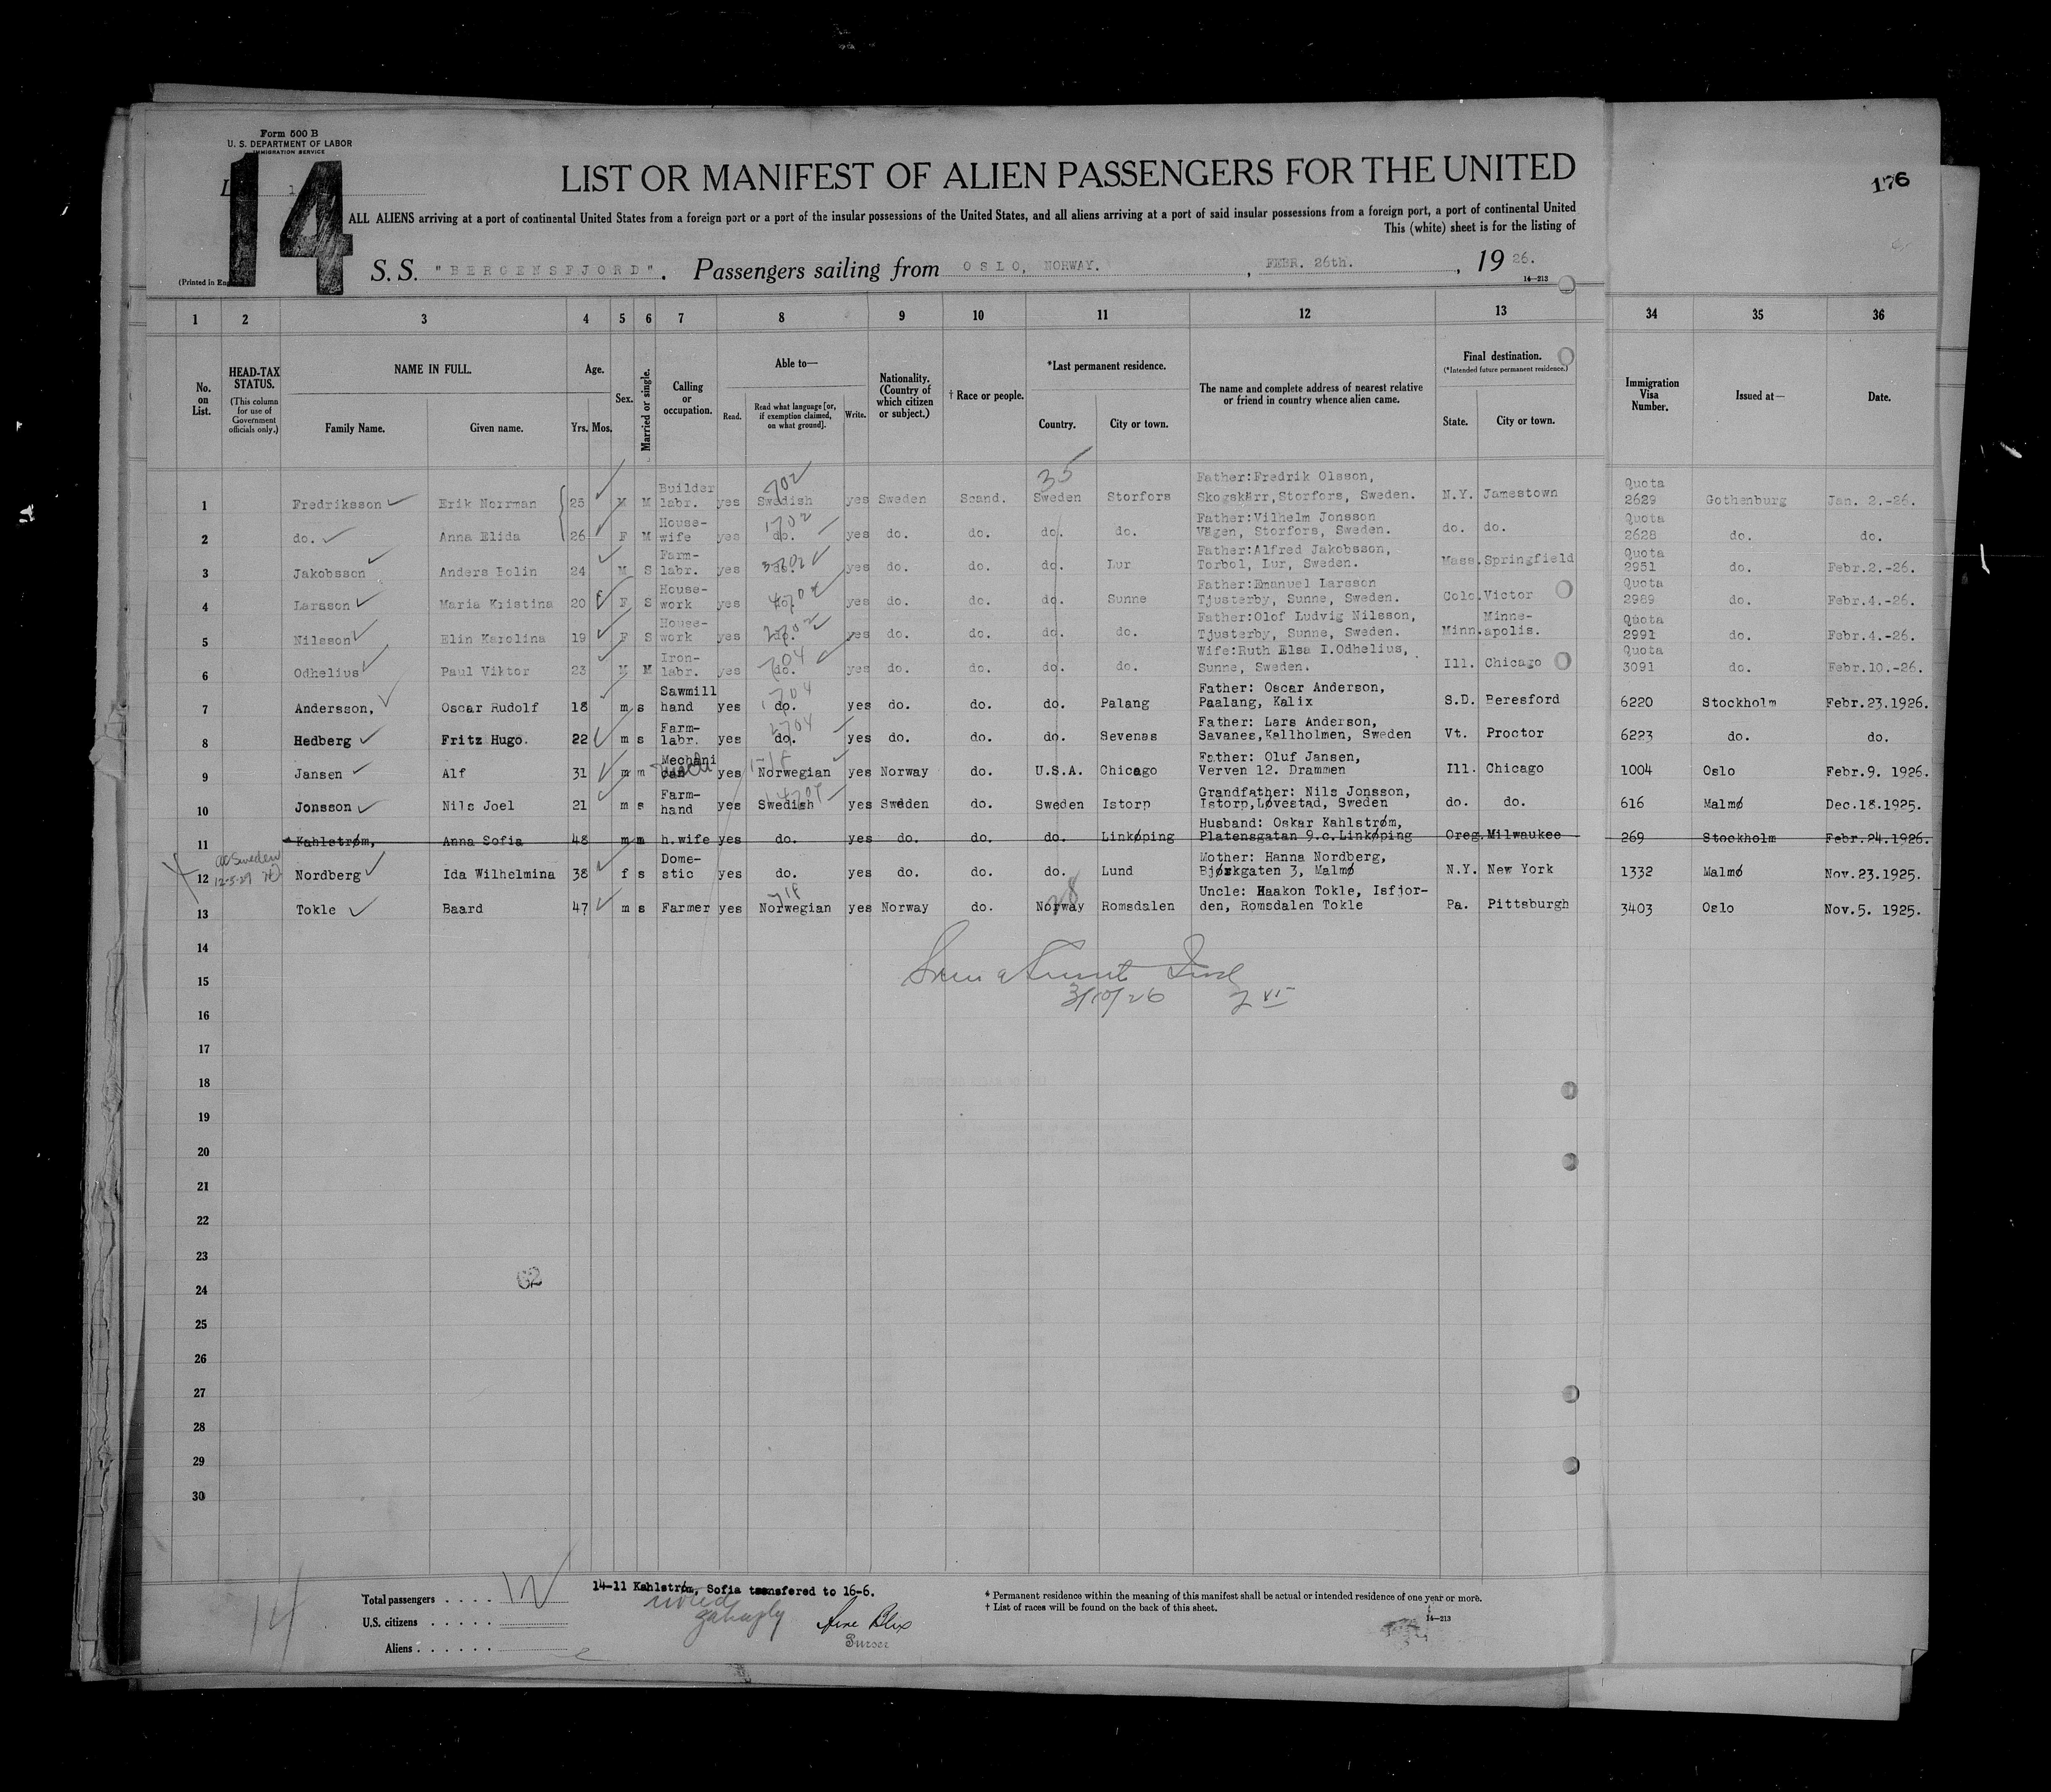 Form 500 B
U. S. DEPARTMENT OF LABOR
IMMIGRATION SERVICE
14
LIST OR MANIFEST OF ALIEN PASSENGERS FOR THE UNITED
176
ALL ALIENS arriving at a port of continental United States from a foreign port or a port of the insular possessions of the United States, and all aliens arriving at a port of said insular possessions from a foreign port, a port of continental United
This (white) sheet is for the listing of
(Printed in
S. S. "BERGENSFJORD". Passengers sailing from OSLO, NORWAY. , FEBR. 26th. , 19 26.
14—213
1 2 3 4 5 6 7 8 9 10 11 12 13 34 35 36
No. on List. HEAD-TAX STATUS. (This column for use of Government officials only.) NAME IN FULL. Family Name. Given name. Age. Yrs. Mos. Sex. Married or single. Calling or occupation. Able to— Read. Read what language [or, if exemption claimed, on what ground]. Write. Nationality. (Country of which citizen or subject.) † Race or people. *Last permanent residence. Country. City or town. The name and complete address of nearest relative or friend in country whence alien came. Final destination. (*Intended future permanent residence.) State. City or town. Immigration Visa Number. Issued at— Date.
35
1 Fredriksson Erik Norrman 25 M M Builder labr. yes Swedish 702 yes Sweden Scand. Sweden Storfors Father:Fredrik Olsson, Skogskärr,Storfors, Sweden. N.Y. Jamestown Quota 2629 Gothenburg Jan. 2.-26.
2 do. Anna Elida 26 F M House-wife yes do. 1702 yes do. do. do. do. Father:Vilhelm Jonsson Vägen, Storfors, Sweden. do. do. Quota 2628 do. do.
3 Jakobsson Anders Bolin 24 M S Farm-labr. yes do. yes do. do. do. Lur Father:Alfred Jakobsson, Torbol, Lur, Sweden. Mass. Springfield Quota 2951 do. Febr.2.-26.
4 Larsson Maria Kristina 20 F S House-work yes do. yes do. do. do. Sunne Father:Emanuel Larsson Tjusterby, Sunne, Sweden. Colo. Victor Quota 2989 do. Febr.4.-26.
5 Nilsson Elin Karolina 19 F S House-work yes do. yes do. do. do. do. Father:Olof Ludvig Nilsson, Tjusterby, Sunne, Sweden. Minn. Minne-apolis. Quota 2991 do. Febr.4.-26.
6 Odhelius Paul Viktor 23 M M Iron-labr. yes do. 704 yes do. do. do. do. Wife:Ruth Elsa I.Odhelius, Sunne, Sweden. Ill. Chicago Quota 3091 do. Febr.10.-26.
7 Andersson, Oscar Rudolf 18 m s Sawmill hand yes do. 1704 yes do. do. do. Palang Father: Oscar Anderson, Paalang, Kalix S.D. Beresford 6220 Stockholm Febr.23.1926.
8 Hedberg Fritz Hugo. 22 m s Farm-labr. yes do. 2704 yes do. do. do. Sevenas Father: Lars Anderson, Savanes,Kallholmen, Sweden Vt. Proctor 6223 do. do.
9 Jansen Alf 31 m m Mechani yes Norwegian yes Norway do. U.S.A. Chicago Father: Oluf Jansen, Verven 12. Drammen Ill. Chicago 1004 Oslo Febr.9. 1926.
10 Jonsson Nils Joel 21 m s Farm-hand yes Swedish yes Sweden do. Sweden Istorp Grandfather: Nils Jonsson, Istorp,Løvestad, Sweden do. do. 616 Malmø Dec.18.1925.
11 Kahlstrøm, Anna Sofia 48 m m h.wife yes do. yes do. do. do. Linkøping Husband: Oskar Kahlstrøm, Platensgatan 9.c.Linkøping Oreg. Milwaukee 269 Stockholm Febr.24.1926.
12 Sweden 12-5-29 Nordberg Ida Wilhelmina 38 f s Dome-stic yes do. yes do. do. do. Lund Mother: Hanna Nordberg, Bjørkgaten 3, Malmø N.Y. New York 1332 Malmø Nov.23.1925.
13 Tokle Baard 47 m s Farmer yes Norwegian yes Norway do. Norway Romsdalen Uncle: Haakon Tokle, Isfjor-den, Romsdalen Tokle Pa. Pittsburgh 3403 Oslo Nov.5. 1925.
14
15
3/10/26
16
17
18
19
20
21
22
23
62
24
25
26
27
28
29
30
14
Total passengers . . . .
U.S. citizens . . . . . .
Aliens . . . . . . .
14-11 Kahlstrøm, Sofia transfered to 16-6.
noted
Arne Blix
Purser
* Permanent residence within the meaning of this manifest shall be actual or intended residence of one year or more.
† List of races will be found on the back of this sheet.
14—213